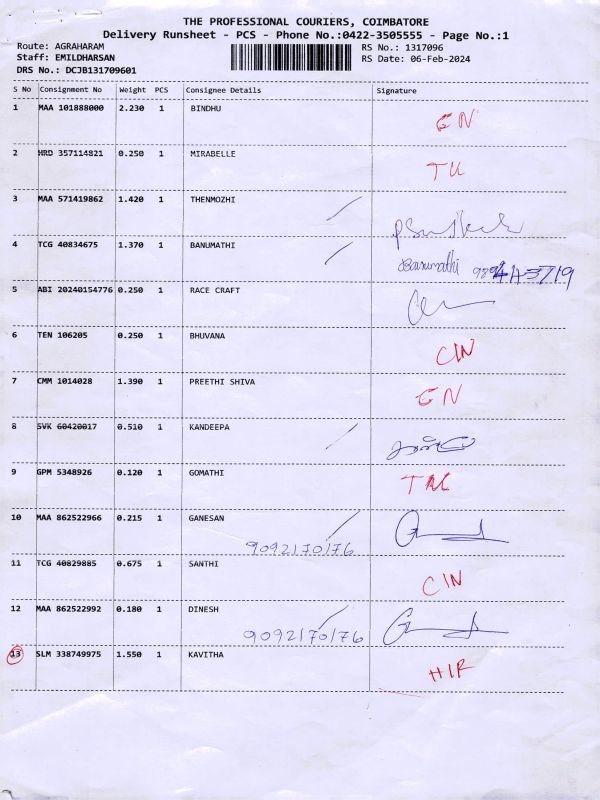 THE PROFESSIONAL COURIERS, COIMBATORE
Delivery Runsheet - PCS - Phone No.:0422-3505555 - Page No.:1
Route: AGRAHARAM RS No.: 1317096
Staff: EMILDHARSAN RS Date: 06-Feb-2024
DRS No.: DCJB131709601
S No Consignment No Weight PCS Consignee Details Signature
1 MAA 101888000 2.230 1 BINDHU
GN
2 HRD 357114821 0.250 1 MIRABELLE
3 MAA 571419862 1.420 1 THENMOZHI
4 TCG 40834675 1.370 1 BANUMATHI
Banumathi
5 ABI 20240154776 0.250 1 RACE CRAFT
6 TEN 106205 0.250 1 BHUVANA
CIN
7 CMM 1014028 1.390 1 PREETHI SHIVA
GN
8 SVK 60420017 0.510 1 KANDEEPA
9 GPM 5348926 0.120 1 GOMATHI
10 MAA 862522966 0.215 1 GANESAN
9092170176
11 TCG 40829885 0.675 1 SANTHI
CIN
12 MAA 862522992 0.180 1 DINESH
9092170176
13 SLM 338749975 1.550 1 KAVITHA